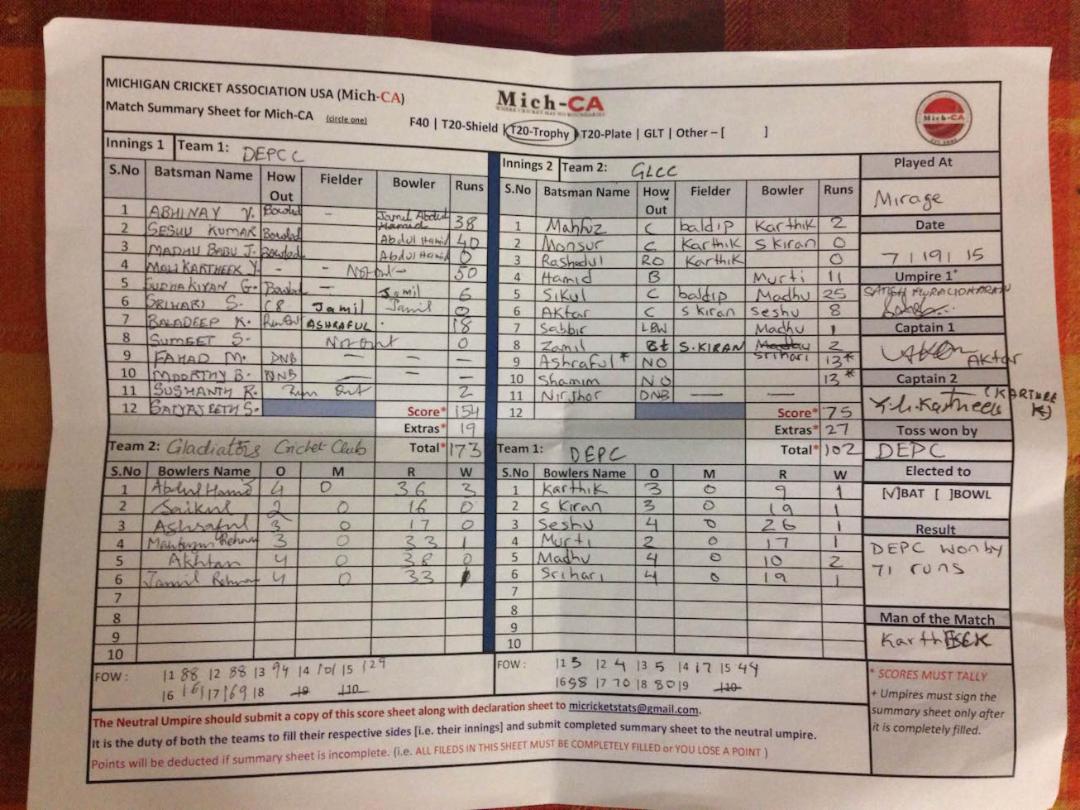 MICHIGAN CRICKET ASSOCIATION USA (Mich-CA)
Match Summary Sheet for Mich-CA (circle one) F40 | T20-Shield | T20-Trophy | T20-Plate | GLT | Other – [ ]
Mich-CA
Mich-CA
Innings 1 Team 1: DEPCC
S.No Batsman Name How Out Fielder Bowler Runs
1 ABHINAY Y. Bowled – Jamil Abdul Hamid 38
2 SESHU KUMAR Bowled Abdul Hamid 40
3 MADHU BABU J. Bowled Abdul Hamid 0
4 MOLI KARTHEEK Y. - - Not out - 50
5 SUDHA KIRAN G. Bowled - Jamil 6
6 SRIHARI S. CB Jamil Jamil 0
7 BALADEEP K. Run Out ASHRAFUL - 18
8 SUMEET S. Not out 0
9 FAHAD M. DNB — — —
10 MOORTHY B. DNB — — —
11 SUSHANTH R. Run Out 2
12 SATYAJEETH S. Score* 154
Extras* 19
Total* 173
Team 2: Gladiators Cricket Club
S.No Bowlers Name O M R W
1 Abdul Hamid 4 0 36 3
2 Saikul 2 0 16 0
3 Ashraful 3 0 17 0
4 Rehman 3 0 33 1
5 Akhtar 4 0 38 0
6 Jamil Rehman 4 0 33 1
7
8
9
10
FOW: |1 88 |2 88 |3 94 |4 101 |5 129
|6 161 |7 169 |8 |9 |10
Innings 2 Team 2: GLCC
S.No Batsman Name How Out Fielder Bowler Runs
1 Mahfuz C baldip Karthik 2
2 Monsur C Karthik S kiran 0
3 Rashadul RO Karthik 0
4 Hamid B Murti 11
5 Sikul C baldip Madhu 25
6 Aktar C S kiran Seshu 8
7 Sabbir LBW Madhu 1
8 Zamil Bt S.KIRAN Srihari 2
9 Ashraful * NO 13*
10 Shamim NO 13*
11 Nirjhor DNB — — —
12 Score* 75
Extras* 27
Total* 102
Team 1: DEPC
S.No Bowlers Name O M R W
1 Karthik 3 0 9 1
2 S Kiran 3 0 19 1
3 Seshu 4 0 26 1
4 Murti 2 0 17 1
5 Madhu 4 0 10 2
6 Srihari 4 0 19 1
7
8
9
10
FOW: |1 3 |2 4 |3 5 |4 17 |5 44
|6 58 |7 70 |8 80 |9 |10
Played At
Mirage
Date
7/19/15
Umpire 1+
SATISH MURALIDHARAN
Captain 1
Aktar
Captain 2
Y.M.Kartheek (KARTHEEK)
Toss won by
DEPC
Elected to
[√]BAT [ ]BOWL
Result
DEPC won by
71 runs
Man of the Match
KarthEEK
* SCORES MUST TALLY
+ Umpires must sign the
summary sheet only after
it is completely filled.
The Neutral Umpire should submit a copy of this score sheet along with declaration sheet to micricketstats@gmail.com.
It is the duty of both the teams to fill their respective sides [i.e. their innings] and submit completed summary sheet to the neutral umpire.
Points will be deducted if summary sheet is incomplete. (i.e. ALL FILEDS IN THIS SHEET MUST BE COMPLETELY FILLED or YOU LOSE A POINT )